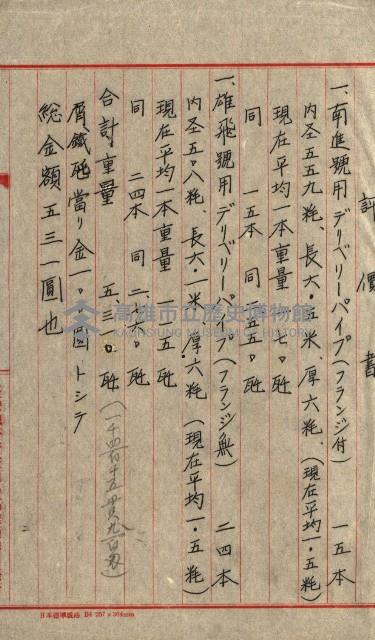 評價書
一、南進號用デリベリーパイプ(フランジ付) 一五本
内圣五五九粍、長六・五米、厚六粍、(現在平均一・五粍)
現在平均一本重量 一七〇瓩
同 一五本 同 二五五〇瓩
一、雄飛號用デリベリーパイプ(フランジ無) 二四本
内圣五〇八粍、長六・一米、厚六粍 (現在平均一・五粍)
現在平均一本重量 一一五瓩
同 二四本 同 二七六〇瓩
合計重量 五三一〇瓩 (一千四百十五貫九百匁)
屑鐵瓩當り金・一〇圓トシテ
総金額 五三一圓也
日本標準規格 B4 257×364mm
高雄市立歷史博物館
KAOHSIUNG MUSEUM OF HISTORY